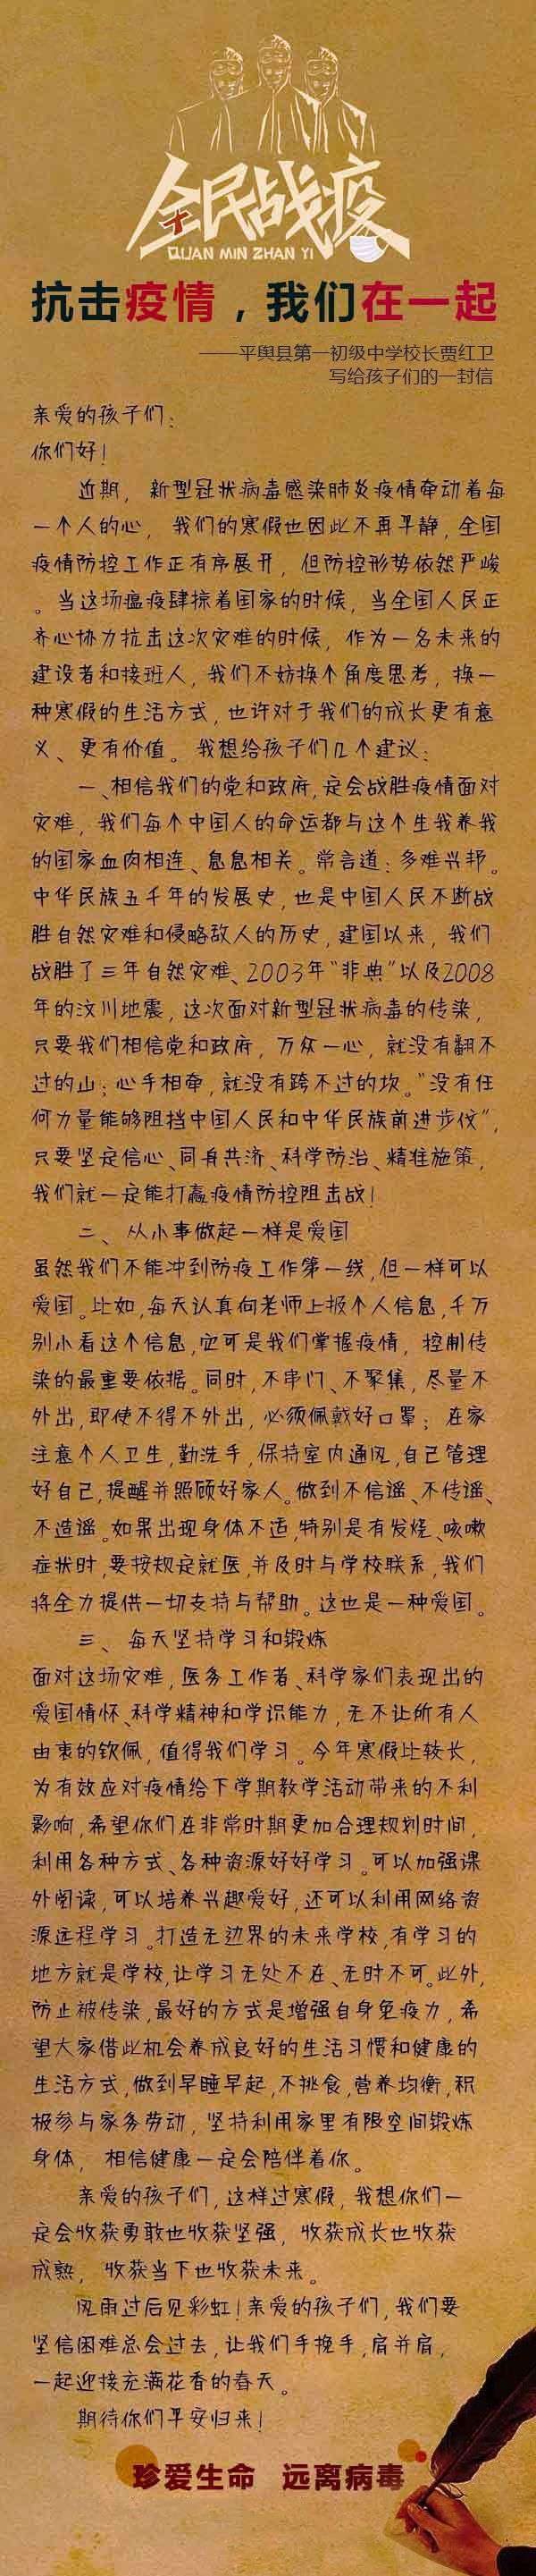 全民战疫
QUAN MIN ZHAN YI
抗击疫情，我们在一起
——平舆县第一初级中学校长贾红卫
写给孩子们的一封信
亲爱的孩子们：
你们好！
近期，新型冠状病毒感染肺炎疫情牵动着每
一个人的心，我们的寒假也因此不再平静，全国
疫情防控工作正有序展开，但防控形势依然严峻
。当这场瘟疫肆掠着国家的时候，当全国人民正
齐心协力抗击这次灾难的时候，作为一名未来的
建设者和接班人，我们不妨换个角度思考，换一
种寒假的生活方式，也许对于我们的成长更有意
义、更有价值。我想给孩子们几个建议：
一、相信我们的党和政府，定会战胜疫情面对
灾难，我们每个中国人的命运都与这个生我养我
的国家血肉相连、息息相关。常言道：多难兴邦。
中华民族五千年的发展史，也是中国人民不断战
胜自然灾难和侵略敌人的历史，建国以来，我们
战胜了三年自然灾难、2003年“非典”以及2008
年的汶川地震，这次面对新型冠状病毒的传染，
只要我们相信党和政府，万众一心，就没有翻不
过的山；心手相牵，就没有跨不过的坎。“没有任
何力量能够阻挡中国人民和中华民族前进步伐”，
只要坚定信心、同舟共济、科学防治、精准施策，
我们就一定能打赢疫情防控阻击战！
二、从小事做起一样是爱国
虽然我们不能冲到防疫工作第一线，但一样可以
爱国。比如，每天认真向老师上报个人信息，千万
别小看这个信息，它可是我们掌握疫情，控制传
染的最重要依据。同时，不串门、不聚集，尽量不
外出，即使不得不外出，必须佩戴好口罩；在家
注意个人卫生，勤洗手，保持室内通风，自己管理
好自己，提醒并照顾好家人。做到不信谣、不传谣、
不造谣。如果出现身体不适，特别是有发烧、咳嗽
症状时，要按规定就医，并及时与学校联系，我们
将全力提供一切支持与帮助。这也是一种爱国。
三、每天坚持学习和锻炼
面对这场灾难，医务工作者、科学家们表现出的
爱国情怀、科学精神和学识能力，无不让所有人
由衷的钦佩，值得我们学习。今年寒假比较长，
为有效应对疫情给下学期教学活动带来的不利
影响，希望你们在非常时期更加合理规划时间，
利用各种方式、各种资源好好学习。可以加强课
外阅读，可以培养兴趣爱好，还可以利用网络资
源远程学习。打造无边界的未来学校，有学习的
地方就是学校，让学习无处不在、无时不可。此外，
防止被传染，最好的方式是增强自身免疫力，希
望大家借此机会养成良好的生活习惯和健康的
生活方式，做到早睡早起，不挑食，营养均衡，积
极参与家务劳动，坚持利用家里有限空间锻炼
身体，相信健康一定会陪伴着你。
亲爱的孩子们，这样过寒假，我想你们一
定会收获勇敢也收获坚强，收获成长也收获
成熟，收获当下也收获未来。
风雨过后见彩虹！亲爱的孩子们，我们要
坚信困难总会过去，让我们手挽手，肩并肩，
一起迎接充满花香的春天。
期待你们平安归来！
珍爱生命 远离病毒